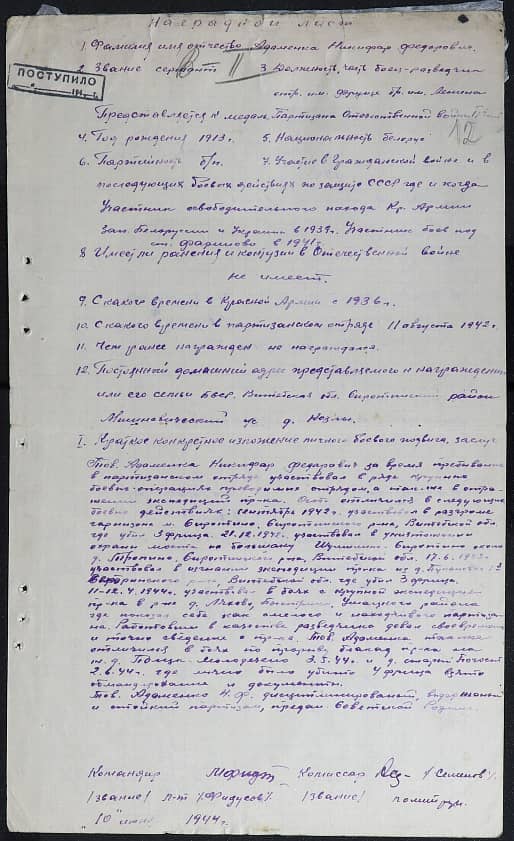 Наградной лист
1. Фамилия имя отчество Адаменка Никифар Федорович.
2. Звание сержант 3. Должность, часть боец-разведчик
ПОСТУПИЛО
отр. им. Фрунзе бр. им. Ленина
Представляется к медали Партизана Отечественной войны
12
4. Год рождения 1913 г. 5. Национальность белорус
6. Партийность б/п. 7. Участие в Гражданской войне и в
последующих боевых действиях по защите СССР где и когда
Участник освободительного похода Кр. Армии
Зап. Белоруссии и Украины в 1939 г. Участник боев под
ст. в 1941 г.
8 Имеет ли ранения и контузии в Отечественной войне
не имеет.
9. С какого времени в Красной Армии с 1936 г.
10. С какого времени в партизанском отряде 11 августа 1942 г.
11. Чем ранее награжден не награждался.
12. Постоянный домашний адрес представляемого к награждению
или его семьи БССР, Витебская обл. Сиротинский район
с/с д.
I. Краткое конкретное изложение личного боевого подвига, заслуг
Тов. Адаменка Никифар Федарович за время пребывания
в партизанском отряде участвовал в ряде крупных
боевых операциях проводимых отрядом, а также в отра-
жении экспедиций пр-ка. Особ. отличился в следующих
боевых действиях: сентябрь 1942 г. участвовал в разгроме
гарнизона м. Сиротино, Сиротинского р-на, Витебской обл
где убил 3 фрица. 21.12.1942 г. участвовал в уничтожении
охраны моста на большаку Шумилино - Сиротино около
д. Сиротинского р-на, Витебской обл. 17.6.
участвовал в изгнании экспедиции пр-ка из д.
р-на, Витебской обл. где убил 3 фрица.
11-12.4.1944 г. участвовал в боях с крупной экспедицией
пр-ка в р-не д. Ушачского района
где показал себя как смелого и находчивого партиза-
на. Работовши в качестве разведчика девал своевременно
и точно сведение о пр-ке. Тов. Адаменка также
отличился в боях по прорыву блокад пр-ка на
3.5.44 г. и д. старый
2.6.44 г. где лично было убито 4 фрица взято
и документы.
Тов. Адаменко Н.Ф. дисциплинированый, выдержаный
и стойкий партизан, предан Советской Родине.
Командир Комиссар /Семенов/.
/звание/ л-т /Фидусов/. /звание/ политрук.
"10" 1944 г.